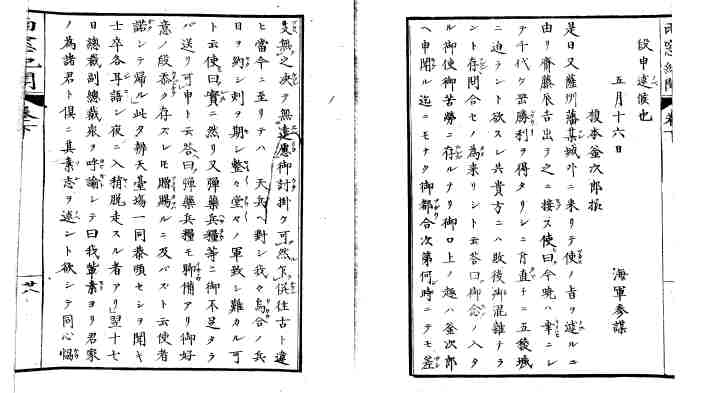 雨窓紀聞 巻下
段申達候也
五月十六日
海軍参謀
榎本釜次郎様
是日又薩州藩某城外ニ来リテ使ノ旨ヲ達ルニ
由リ齋藤辰吉出テ之ニ接ス使曰今暁ハ幸ニシ
テ千代ケ岱勝利ヲ得タリシニ付直チニ五稜城
ニ迫ラント欲スレ共貴方ニハ敗後御混雜ナラ
ント存問合セノ為来リシト云答曰御念ノ入タ
ル御使御苦勞ニ存ルナリ御口上ノ趣ハ釜次郎
ヘ申聞ル迄ニモナク御都合次第何時ニテモ差
支無之決ヲ無遠慮御討掛ク可然乍併往古ト違
ヒ當今ニ至リテハ 天兵ヘ對シ我々烏合ノ兵
日ヲ約シ剋ヲ期シ整々堂々ノ軍致シ難カル可
ト云使曰實ニ然リ又彈藥兵糧等ニ御不足タラ
バ送リ可申ト云答曰彈藥兵糧モ聊備アリ御好
意ノ段忝ク存スレモ贈賜ニ及バスト云使者
諾シテ歸ル此夕辨天臺塲一同恭順セシヲ聞キ
士卒各耳語シ夜ニ入稍脱走スル者アリ翌十七
日總裁副總裁衆ヲ呼諭シテ曰我輩素ヨリ君家
ノ為諸君ト倶ニ其素志ヲ遂ント欲シテ同心恊
雨窓紀聞 巻下
廿八